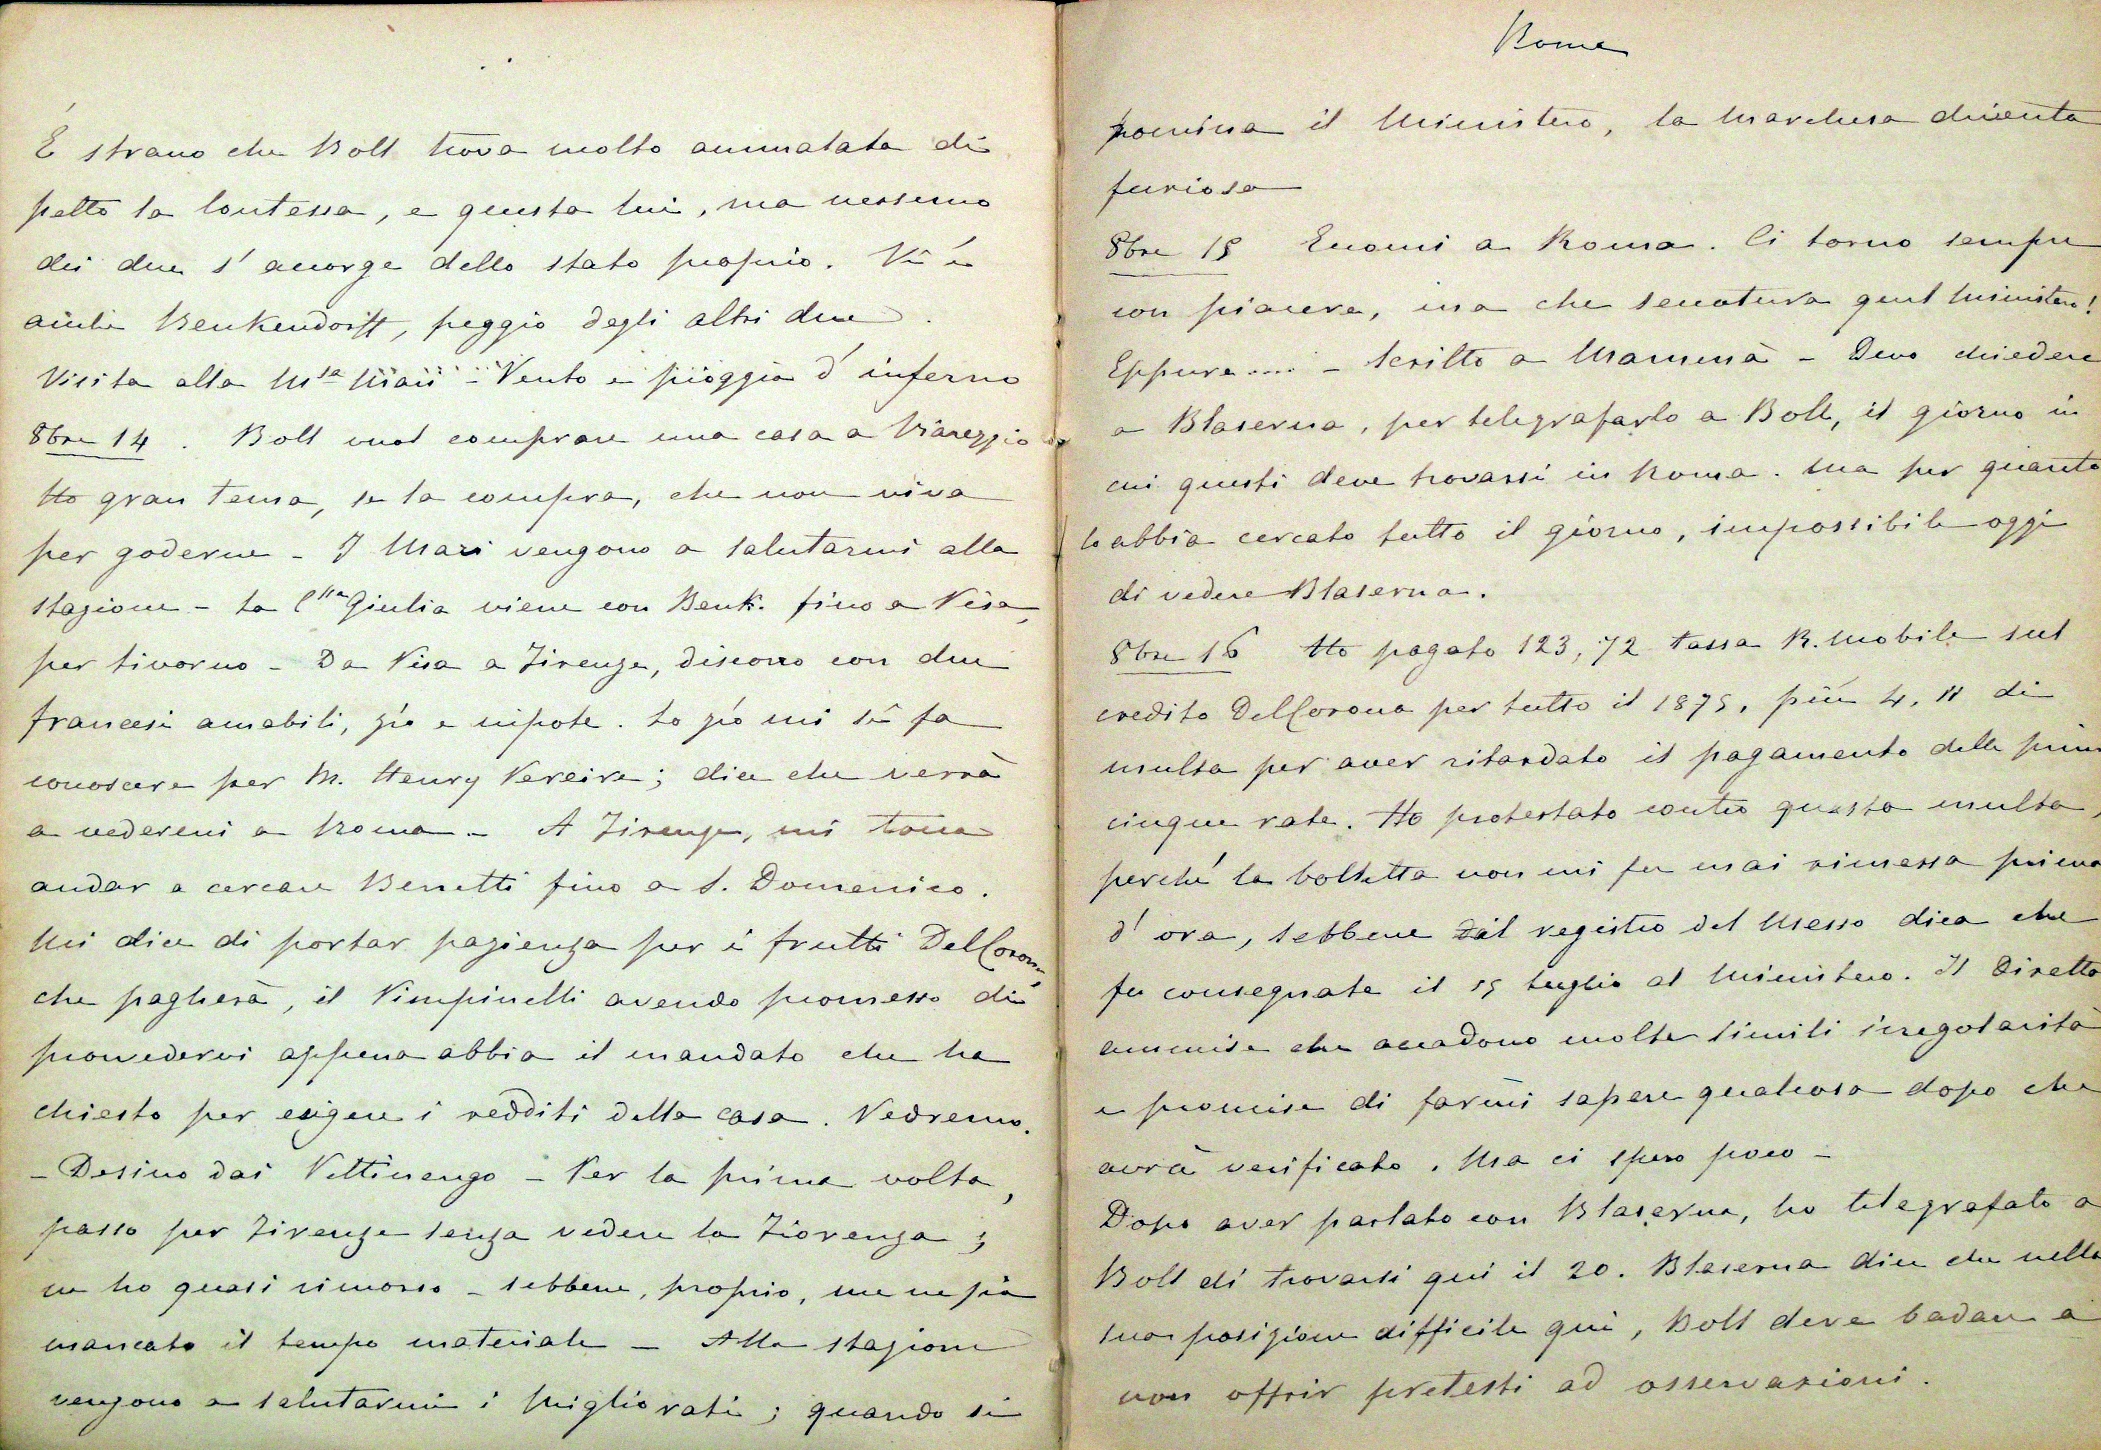 È strano che Boll trova molto ammalata di
petto la Contessa, e questa lui, ma nessuno
dei due s'accorge dello stato proprio. Vi è
anche Benkendorff, peggio degli altri due.
Visita alla Msa - Vento e pioggia d'inferno
8bre 14. Boll vuol comprare una casa a Viareggio
Ho gran tema, se la compra, che non viva
per goderne - I Mari vengono a salutarmi alla
stazione - La Cssa Giulia viene con Benk. fino a Pisa,
per Livorno - Da Pisa a Firenze, discorro con due
francesi amabili, zio e nipote. Lo zio mi si fa
conoscere per M. Henry Pereire; dice che verrà
a vedermi a Roma - A Firenze, mi tocca
andar a cercare Berretti fino a S. Domenico.
Mi dice di portar pazienza per i frutti DelCorona
che pagherà, il Pimpinelli avendo promesso di
provvedervi appena abbia il mandato che ha
chiesto per esigere i redditi della casa. Vedremo.
- Desino dai Pettinengo - Per la prima volta,
passo per Firenze senza vedere la Fiorenza;
ne ho quasi rimorso - sebbene, proprio, me ne sia
mancato il tempo materiale - Alla stazione
vengono a salutarmi i Migliorati; quando si
Roma
nomina il Ministero, la Marchesa diventa
furiosa
8bre 15 Eccomi a Roma. Ci torno sempre
con piacere, ma che seccatura quel Ministero!
Eppure .... - Scritto a Mammà - Devo chiedere
a Blaserna, per telegrafarlo a Boll, il giorno in
cui questi deve trovarsi in Roma. Ma per quanto
lo abbia cercato tutto il giorno, impossibile oggi
di vedere Blaserna.
8bre 16 Ho pagato 123,72 tassa R. Mobile sul
credito DelCorona per tutto il 1875, più 4,11 di
multa per aver ritardato il pagamento delle prime
cinque rate. Ho protestato contro questa multa,
perché la bolletta non mi fu mai rimessa prima
d'ora, sebbene dal registro del Messo dica che
fu consegnata il 15 luglio al Ministero. Il Diretto
ammise che accadono molte simili irregolarità
e promise di farmi sapere qualcosa dopo che
avrà verificato. Ma ci spero poco -
Dopo aver parlato con Blaserna, ho telegrafato a
Boll di trovarsi qui il 20. Blaserna dice che nella
sua posizione difficile qui, Boll deve badare a
non offrir pretesti ad osservazioni.